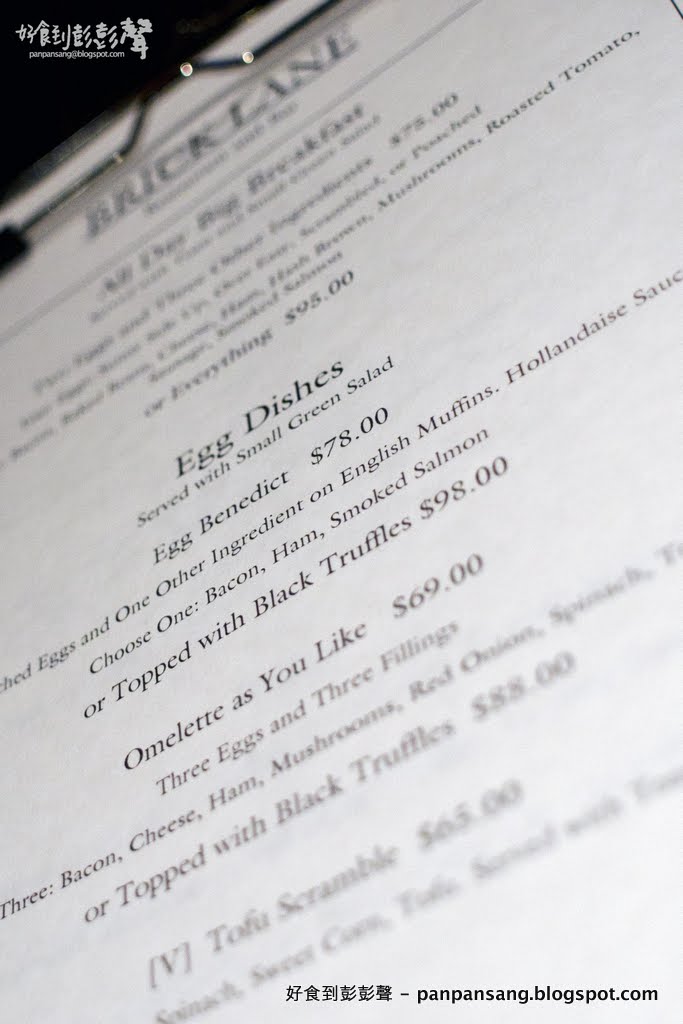 好食到彭彭聲
panpansang@blogspot.com
BRICK LANE
Restaurant and Bar
All Day Big Breakfast
Served with Toast and Small Green Salad
Two Eggs and Three Other Ingredients $75.00
Your Eggs: Sunny Side Up, Over Easy, Scrambled, or Poached
Bacon, Baked Beans, Cheese, Ham, Hash Brown, Mushrooms, Roasted Tomato,
Sausage, Smoked Salmon
or Everything $95.00
Egg Dishes
Served with Small Green Salad
Egg Benedict $78.00
ched Eggs and One Other Ingredient on English Muffins. Hollandaise Sauc
Choose One: Bacon, Ham, Smoked Salmon
or Topped with Black Truffles $98.00
Omelette as You Like $69.00
Three Eggs and Three Fillings
Three: Bacon, Cheese, Ham, Mushrooms, Red Onion, Spinach, To
or Topped with Black Truffles $88.00
[V] Tofu Scramble $65.00
Spinach, Sweet Corn, Tofu. Served with Toas
好食到彭彭聲 – panpansang.blogspot.com